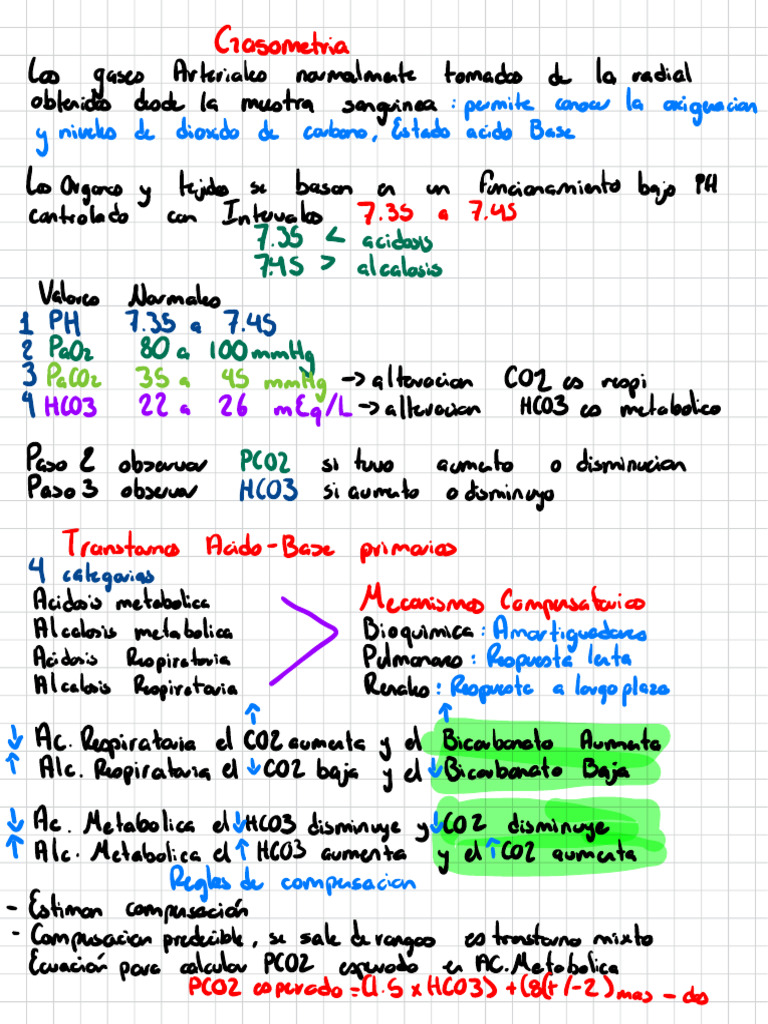 Gasometria
Los gases Arteriales normalmente tomados de la radial
obtenidos desde la muestra sanguinea : permite conocer la oxigenacion
y niveles de dioxido de carbono, Estado acido Base
Los Organos y tejidos se basan en un funcionamiento bajo PH
controlado con Intervalos 7.35 a 7.45
7.35 < acidosis
7.45 > alcalosis
Valores Normales
1 PH 7.35 a 7.45
2 PaO2 80 a 100 mmHg
3 PaCO2 35 a 45 mmHg → alteracion CO2 es respi
4 HCO3 22 a 26 mEq/L → alteracion HCO3 es metabolico
Paso 2 observar PCO2 si tuvo aumento o disminucion
Paso 3 observar HCO3 si aumento o disminuyo
Transtornos Acido-Base primarios
4 categorias
Acidosis metabolica
Alcalosis metabolica
Acidosis Respiratoria
Alcalosis Respiratoria
Mecanismos Compensatorios
Bioquimica : Amortiguadores
Pulmonares : Respuesta lenta
Renales : Respuesta a largo plazo
↓ Ac. Respiratoria el ↑ CO2 aumenta y el ↑ Bicarbonato Aumenta
↑ Alc. Respiratoria el ↓ CO2 baja y el ↓ Bicarbonato Baja
↓ Ac. Metabolica el ↓ HCO3 disminuye y ↓ CO2 disminuye
↑ Alc. Metabolica el ↑ HCO3 aumenta y el ↑ CO2 aumenta
Reglas de compensacion
- Estiman compensación
- Compensacion predecible, se sale de rangos es transtorno mixto
Ecuación para calcular PCO2 esperado en AC. Metabolica
PCO2 esperado = (1.5 x HCO3) + (8(+/-2) mas - dos